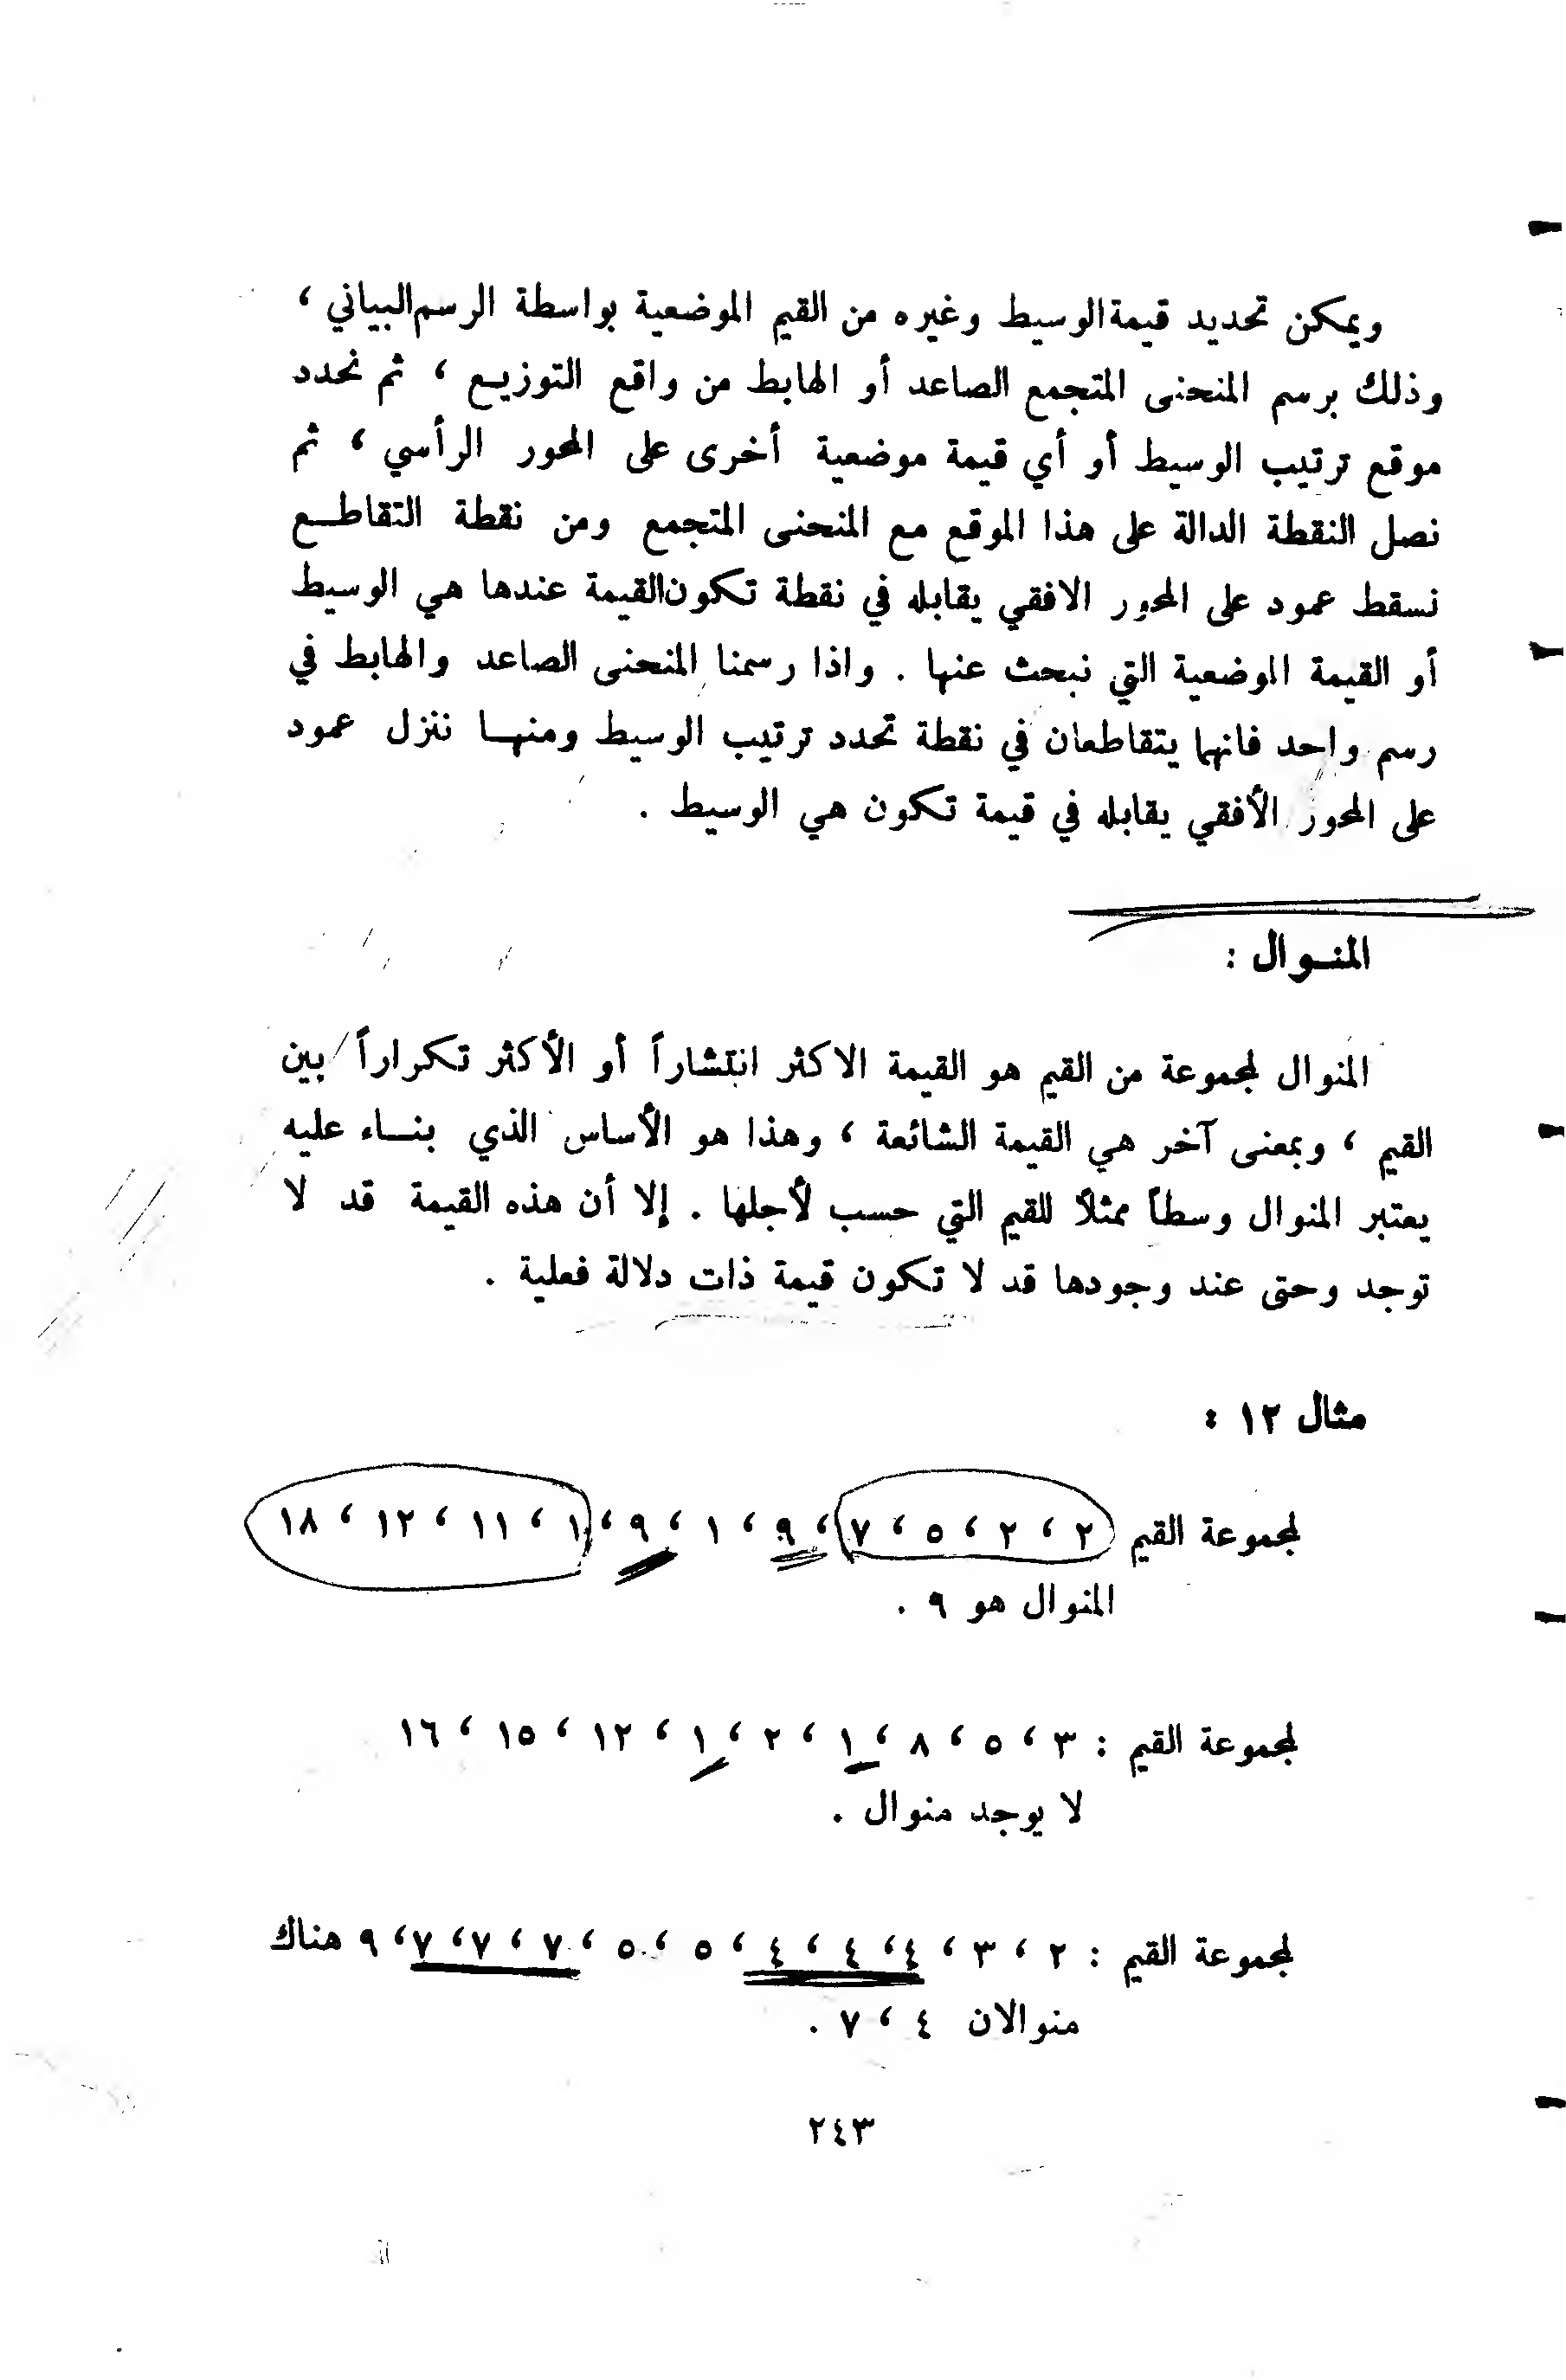 ويمكن تحديد قيمة الوسيط وغيره من القيم الموضعية بواسطة الرسم البياني ،
وذلك برسم المنحنى المتجمع الصاعد أو الهابط من واقع التوزيـع ، ثم نحدد
موقع ترتيب الوسيط أو أي قيمة موضعية أخرى على المحور الرأسي ، ثم
نصل النقطة الدالة على هذا الموقع مع المنحنى المتجمع ومن نقطة التقاطـــع
نسقط عمود على المحور الافقي يقابله في نقطة تكون القيمة عندها هي الوسيط
أو القيمة الموضعية التي نبحث عنها . واذا رسمنا المنحنى الصاعد والهابط في
رسم واحد فانهما يتقاطعان في نقطة تحدد ترتيب الوسيط ومنهــا ننزل عمود
على المحور الأفقي يقابله في قيمة تكون هي الوسيط .
المنــوال :
المنوال لمجموعة من القيم هو القيمة الاكثر انتشاراً أو الأكثر تكراراً بين
القيم ، وبمعنى آخر هي القيمة الشائعة ، وهذا هو الأساس الذي بنـــاء عليه
يعتبر المنوال وسطاً ممثلاً للقيم التي حسب لأجلها . إلا أن هذه القيمة قد لا
توجد وحتى عند وجودها قد لا تكون قيمة ذات دلالة فعلية .
مثال ١٢ :
لمجموعة القيم ٢ ، ٢ ، ٥ ، ٧ ، ٩ ، ١ ، ٩ ، ١ ، ١١ ، ١٢ ، ١٨
المنوال هو ٩ .
لمجموعة القيم : ٣ ، ٥ ، ٨ ، ١ ، ٢ ، ١ ، ١٢ ، ١٥ ، ١٦
لا يوجد منوال .
لمجموعة القيم : ٢ ، ٣ ، ٤ ، ٤ ، ٤ ، ٥ ، ٥ ، ٧ ، ٧ ، ٧ ، ٩ هناك
منوالان ٤ ، ٧ .
٢٤٣